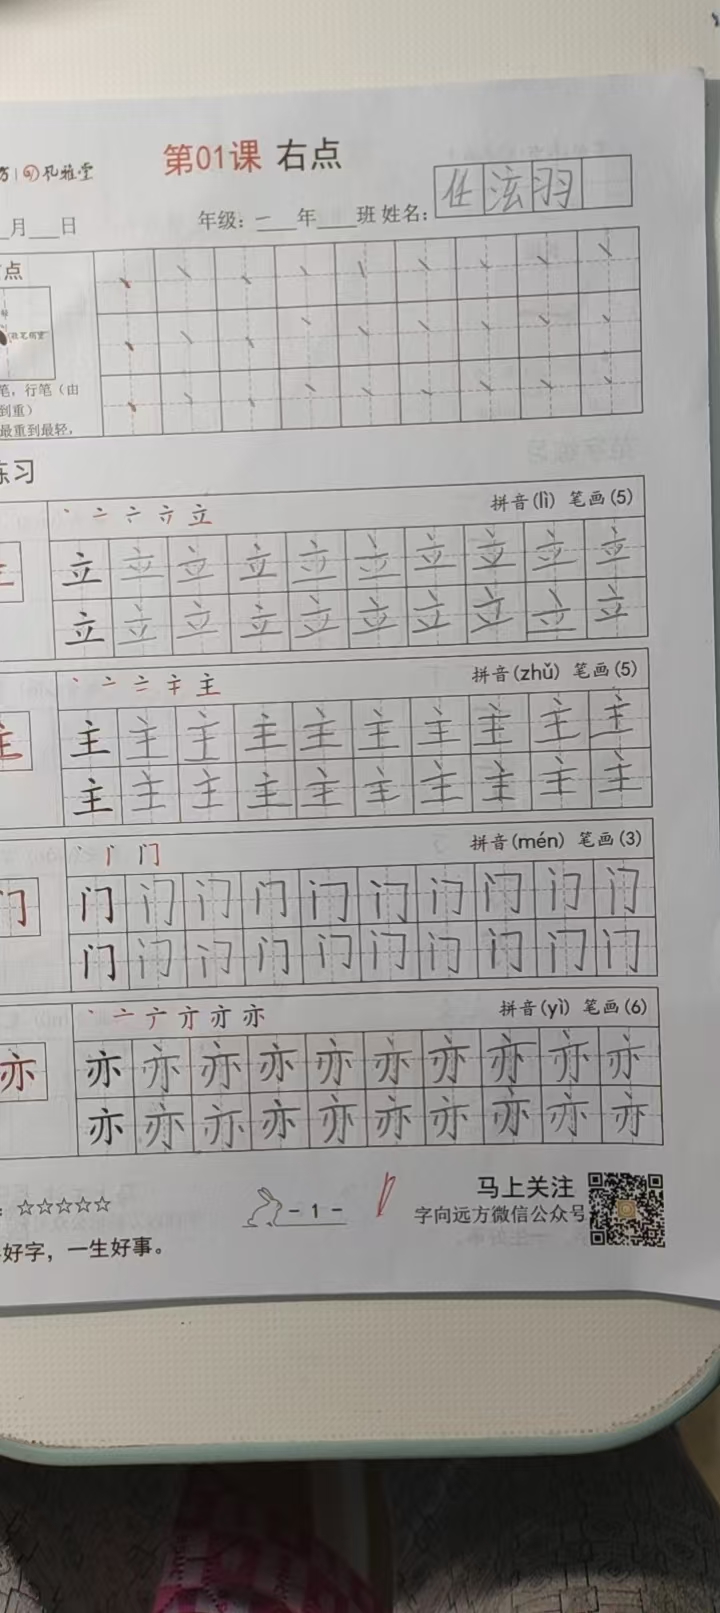 第01课 右点
风雅堂
月 日 年级: 一 年 班 姓名: 任泫羽
点
笔，行笔（由
到重）
最重到最轻，
练习
丶 亠 立 拼音(lì) 笔画(5)
立 立 立 立 立 立 立 立 立 立
立 立 立 立 立 立 立 立 立 立
丶 亠 主 拼音(zhǔ) 笔画(5)
主 主 主 主 主 主 主 主 主 主 主
主 主 主 主 主 主 主 主 主 主
丶 门 拼音(mén) 笔画(3)
门 门 门 门 门 门 门 门 门 门 门
门 门 门 门 门 门 门 门 门 门
丶 亠 亦 亦 拼音(yì) 笔画(6)
亦 亦 亦 亦 亦 亦 亦 亦 亦 亦 亦
亦 亦 亦 亦 亦 亦 亦 亦 亦 亦
☆☆☆☆☆ - 1 - 马上关注
字向远方微信公众号
好字，一生好事。